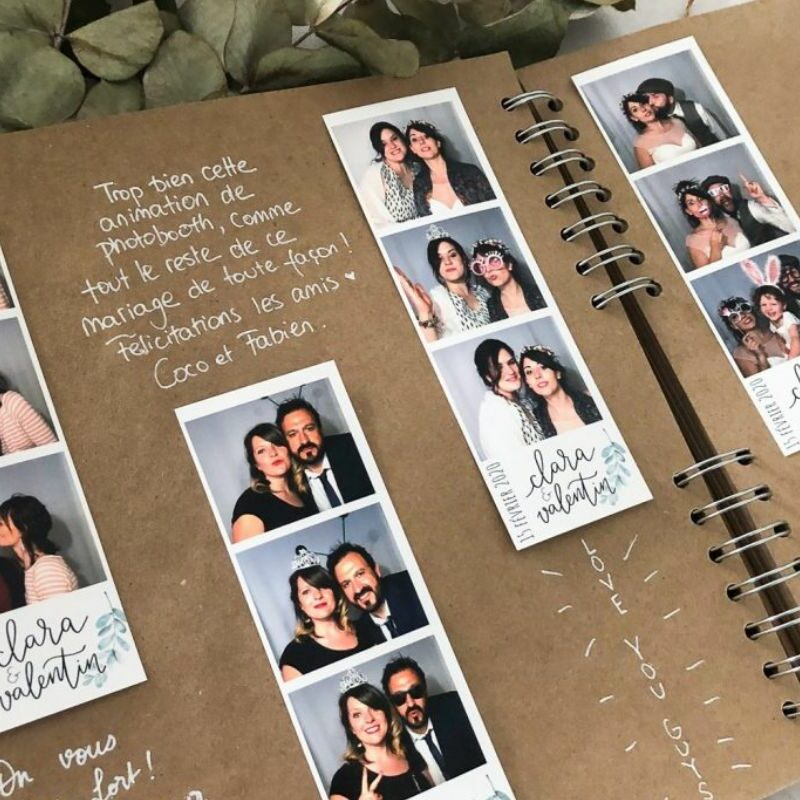 Trop bien cette
animation de
photobooth, comme
tout le reste de ce
mariage de toute façon!
Félicitations les amis ♥
Coco et Fabien.
clara
&
valentin
15 FÉVRIER 2020
clara
&
valentin
LOVE YOU GUYS
15 FÉVRIER 2020
On vous
fort!